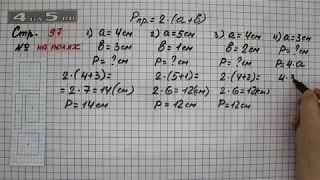 4 на 5.ру
Pпр.=2·(a+b)
Стр. 97
№ на полях
1) a=4см
b=3см
P=?см
2·(4+3)=
=2·7=14(см)
P=14см
2) a=5см
b=1см
P=?см
2·(5+1)=
2·6=12(см)
P=12см
3) a=4см
b=2см
P=?см
2·(4+2)=
2·6=12(см)
P=12см
4) a=3см
P=?см
P=4·a
4·3